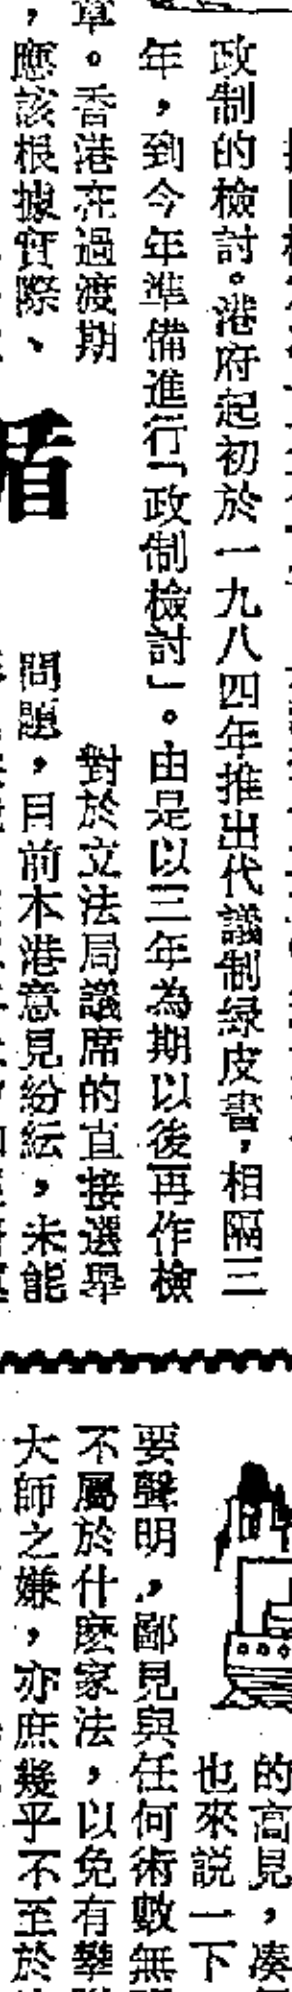 政制的檢討。港府起初於一九八四年推出代議制綠皮書，相隔三
年，到今年準備進行「政制檢討」。由是以三年為期以後再作檢
章。香港在過渡期
，應該根據實際、
對於立法局議席的直接選舉
問題，目前本港意見紛紜，未能
盾
的高見，湊
也來説一下
要聲明，鄙見與任何術數無
不屬於什麽家法，以免有攀
大師之嫌，亦庶幾乎不至於